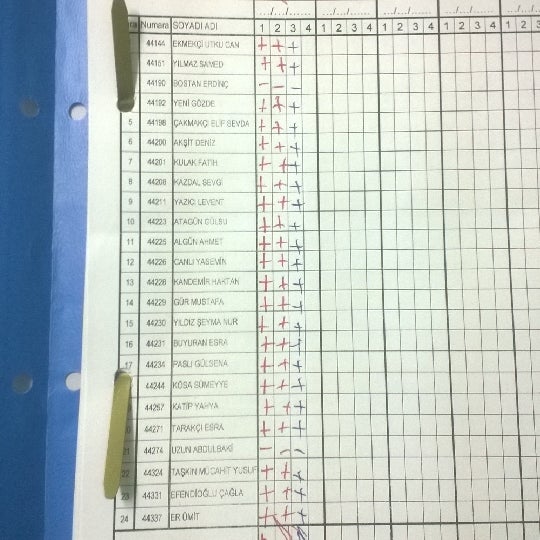 .../.../... .../.../... .../.../... .../.../...
Numara SOYADI ADI 1 2 3 4 1 2 3 4 1 2 3 4 1 2 3 4 1
44144 EKMEKÇİ UTKU CAN + + +
44151 YILMAZ SAMED + + +
44190 BOSTAN ERDİNÇ - - -
44192 YENİ GÖZDE + + +
5 44198 ÇAKMAKÇI ELİF SEVDA + + +
6 44200 AKŞİT DENİZ + + +
7 44201 KULAK FATİH + + +
8 44208 KAZDAL SEVGİ + + +
9 44211 YAZICI LEVENT + + +
10 44223 ATAGÜN GÜLSU + + +
11 44225 ALGÜN AHMET + + +
12 44226 CANLI YASEMİN + + +
13 44228 KANDEMİR HAKTAN + + +
14 44229 GÜR MUSTAFA + + +
15 44230 YILDIZ ŞEYMA NUR + + +
16 44231 BUYURAN ESRA + + +
17 44234 PASLI GÜLSENA + + +
44244 KÖSA SÜMEYYE + + +
44257 KATİP YAHYA + + +
44271 TARAKÇI ESRA + + +
44274 UZUN ABDULBAKİ - - -
22 44324 TAŞKIN MÜCAHİT YUSUF + + +
23 44331 EFENDİOĞLU ÇAĞLA + + +
24 44337 ER ÜMİT + + +